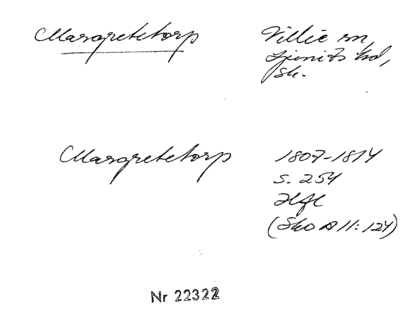 Margretetorp
Villie sn,
Ljunits hd,
Sk.
Margretetorp
1807-1814
s. 254
Hfl
(Sko A II: 124)
Nr 22322